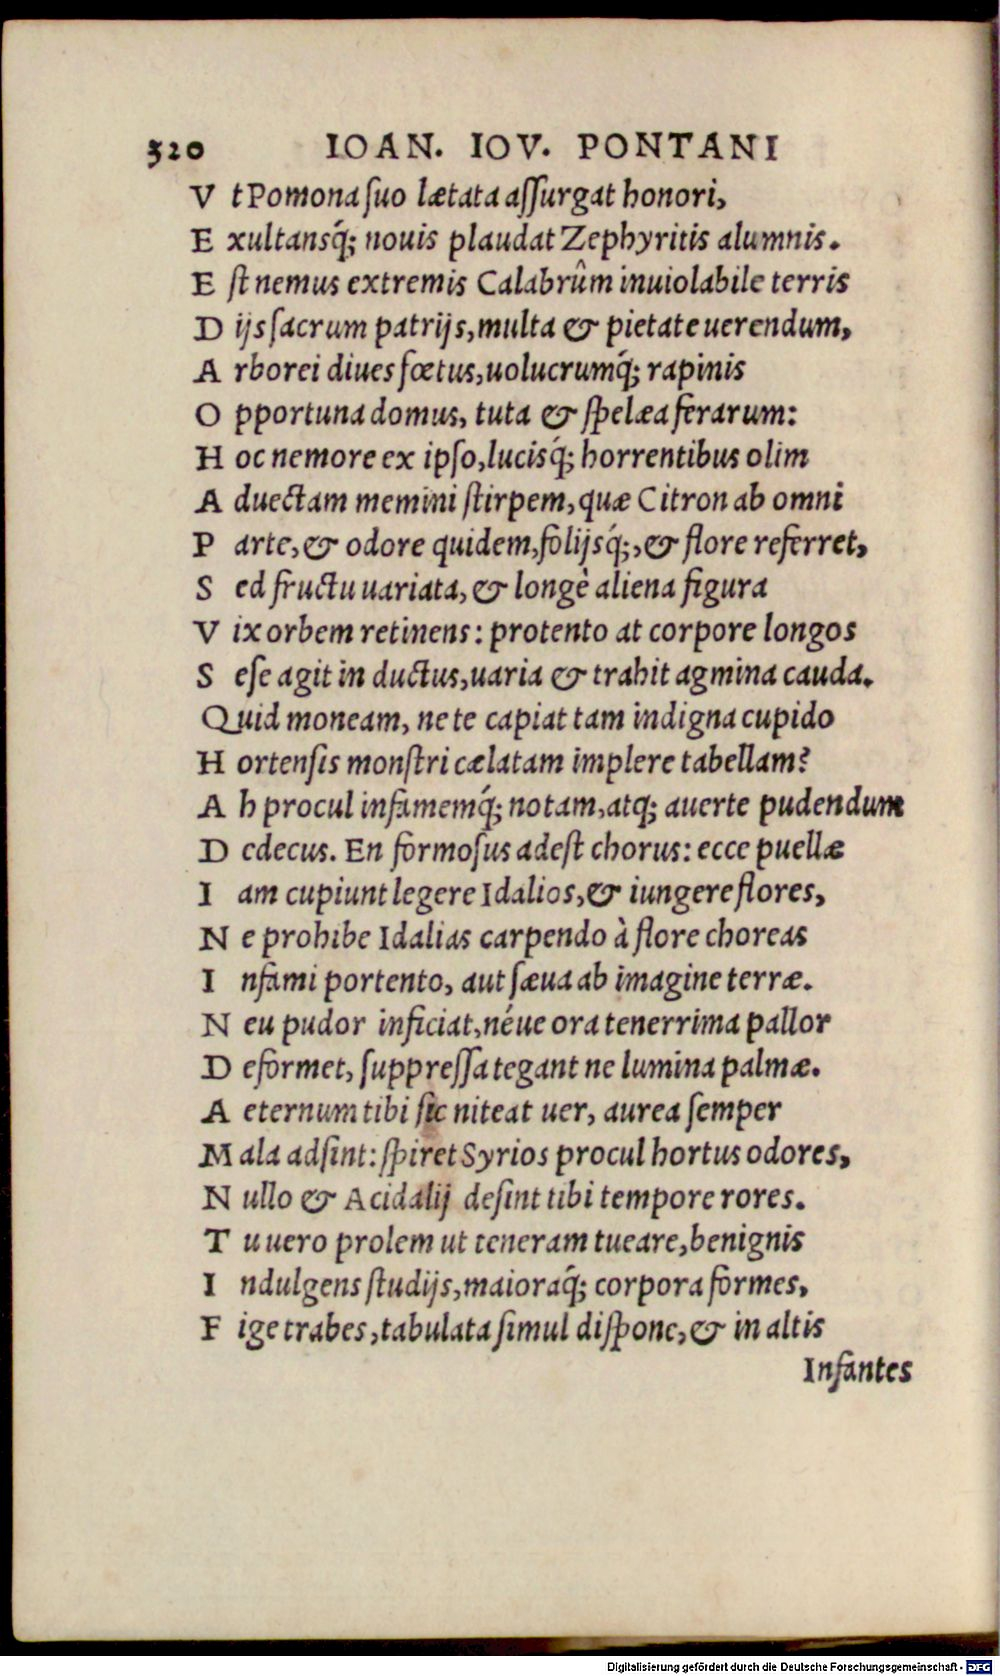 320 IOAN. IOV. PONTANI
V t Pomona suo lætata assurgat honori,
E xultansq́; nouis plaudat Zephyritis alumnis.
E st nemus extremis Calabrûm inuiolabile terris
D ijs sacrum patrijs, multa & pietate uerendum,
A rborei diues fœtus, uolucrumq́; rapinis
O pportuna domus, tuta & spelæa ferarum:
H oc nemore ex ipso, lucisq́; horrentibus olim
A duectam memini stirpem, quæ Citron ab omni
P arte, & odore quidem, folijsq́;, & flore referret,
S ed fructu uariata, & longè aliena figura
V ix orbem retinens: protento at corpore longos
S ese agit in ductus, uaria & trahit agmina cauda.
Quid moneam, ne te capiat tam indigna cupido
H ortensis monstri cælatam implere tabellam?
A h procul infamemq́; notam, atq; auerte pudendum
D edecus. En formosus adest chorus: ecce puellæ
I am cupiunt legere Idalios, & iungere flores,
N e prohibe Idalias carpendo à flore choreas
I nfami portento, aut sæua ab imagine terræ.
N eu pudor inficiat, néue ora tenerrima pallor
D eformet, suppressa tegant ne lumina palmæ.
A eternum tibi sic niteat uer, aurea semper
M ala adsint: spiret Syrios procul hortus odores,
N ullo & Acidalij desint tibi tempore rores.
T u uero prolem ut teneram tueare, benignis
I ndulgens studijs, maioraq́; corpora formes,
F ige trabes, tabulata simul dispone, & in altis
Infantes
Digitalisierung gefördert durch die Deutsche Forschungsgemeinschaft - DFG